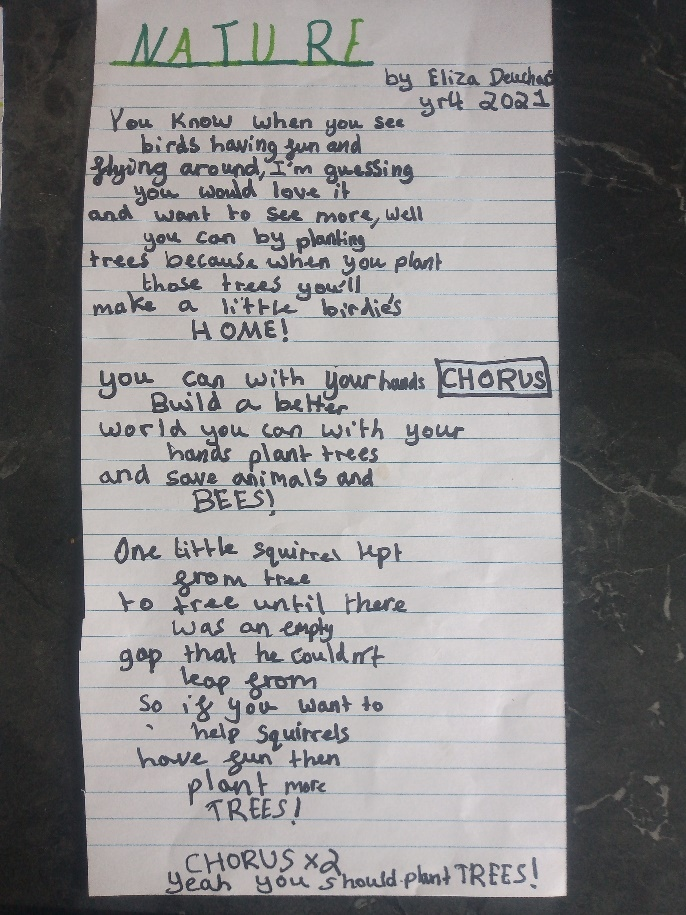 NATURE
by Eliza Deuchar
yr4 2021
You Know when you see
birds having fun and
flying around, I'm guessing
you would love it
and want to see more, Well
you can by planting
trees because when you plant
those trees you'll
make a little birdie's
HOME!
you can with your hands CHORUS
Build a better
world you can with your
hands plant trees
and save animals and
BEES!
One little squirrel lept
from tree
to tree until there
was an empty
gap that he couldn't
leap from
So if you want to
help squirrels
have fun then
plant more
TREES!
CHORUS x2
Yeah you should plant TREES!